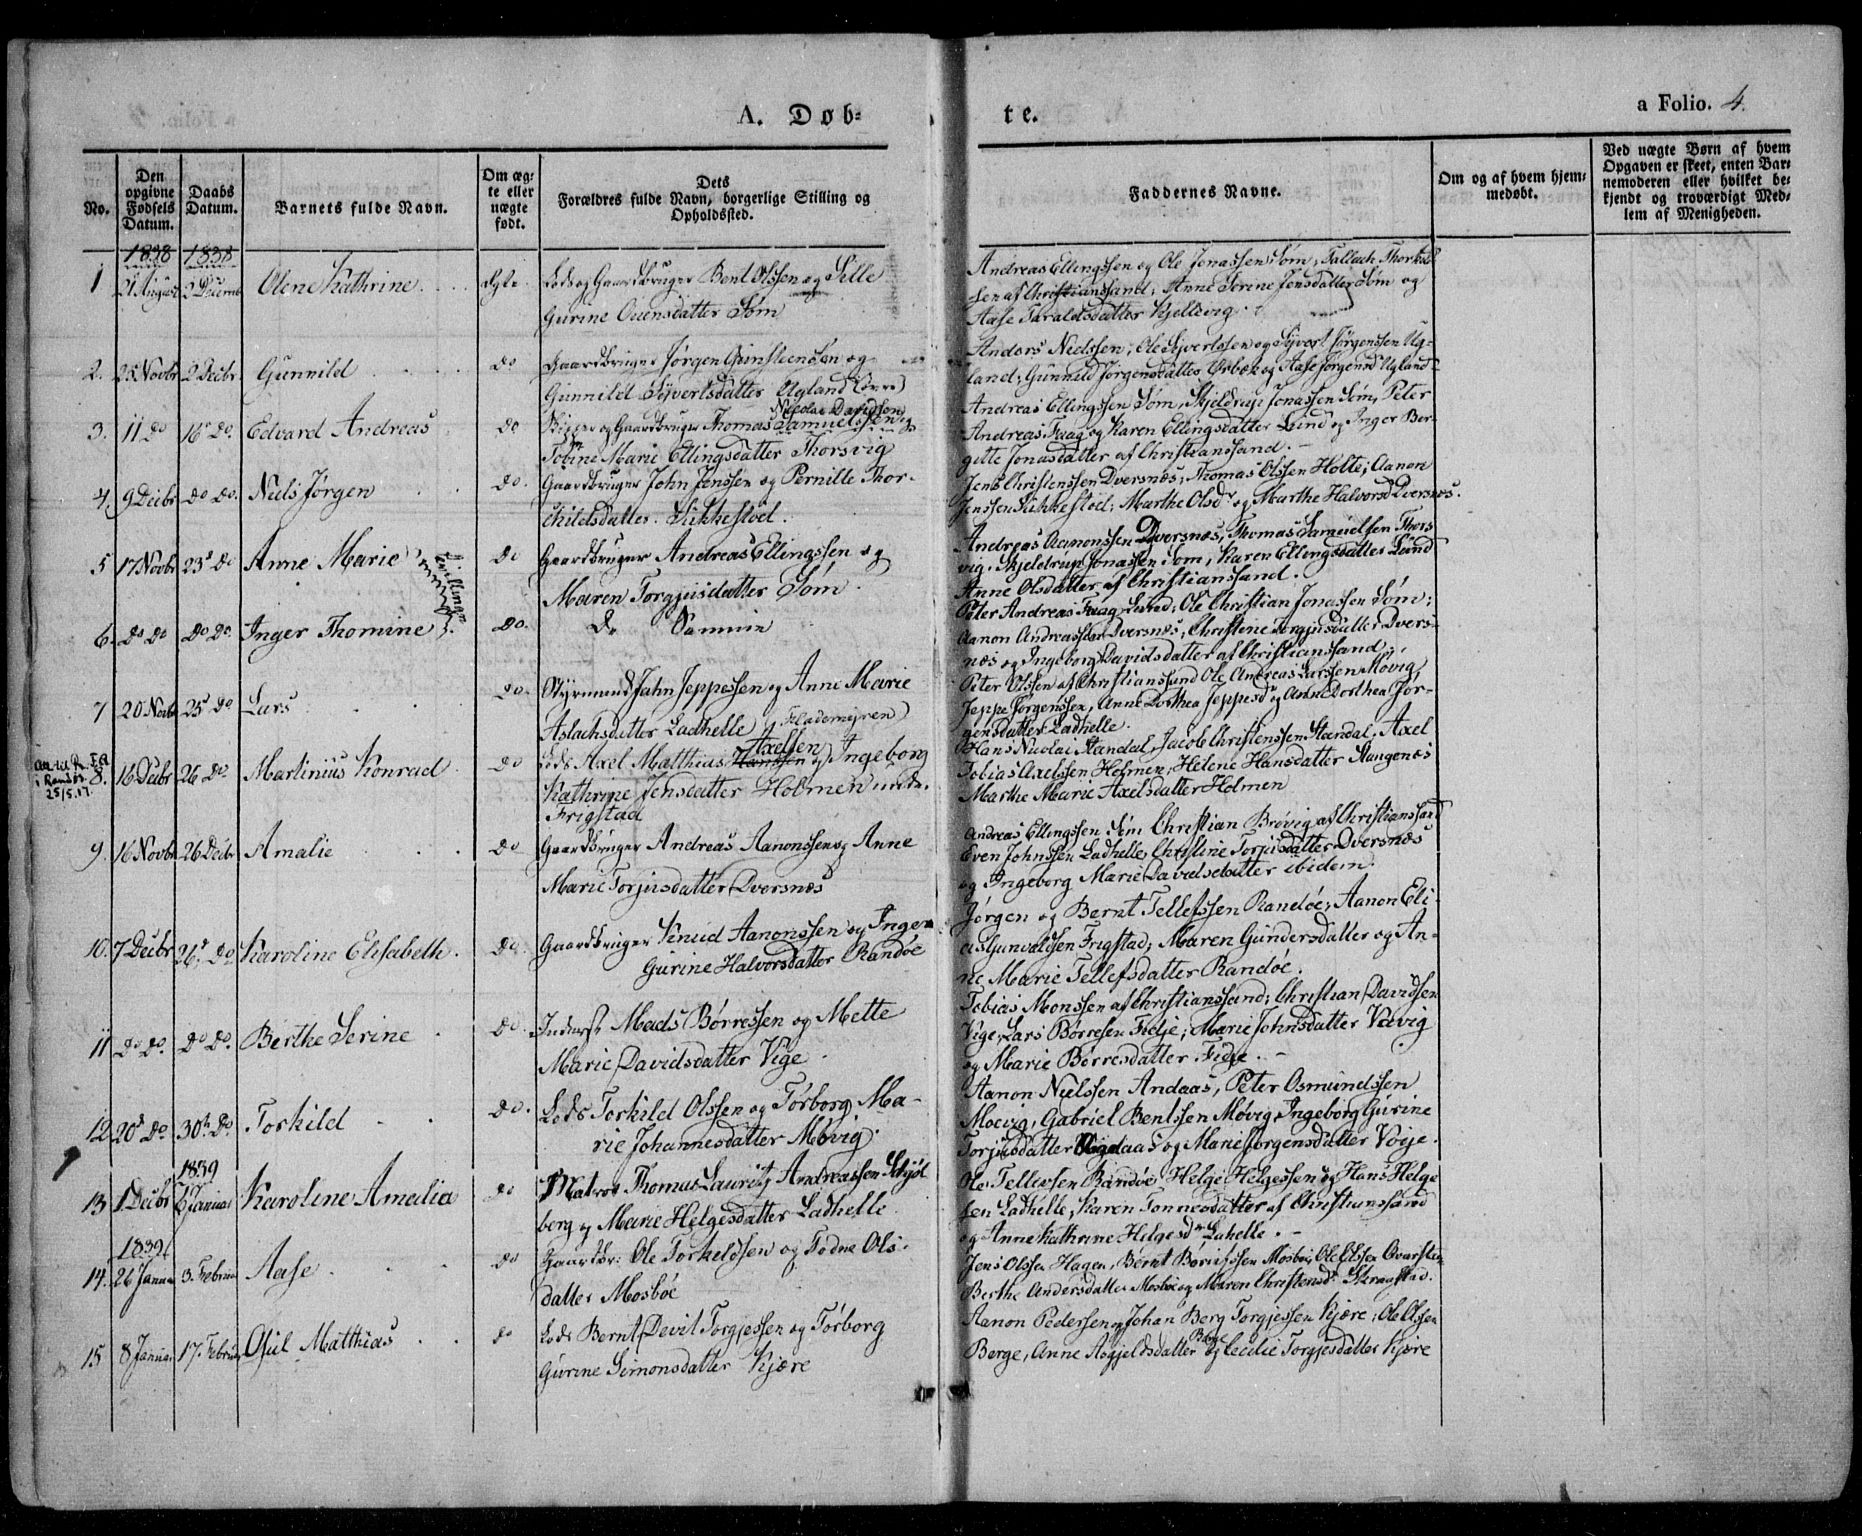 A. Døb-
te.
a Folio. 4.
No.
Den opgivne Fødsels Datum.
Daabs Datum.
Barnets fulde Navn.
Om ægte eller uægte født.
Dets
Forældres fulde Navn, borgerlige Stilling og
Opholdssted.
Faddernes Navne.
Om og af hvem hjem-
medøbt.
Ved uægte Børn af hvem
Opgaven er skeet, enten Bar-
nemoderen eller hvilket be-
kjendt og troværdigt Med-
lem af Menigheden.
1838 1838
1 21 August 2 Decemb Olene Kathrine Egte Lods og Gaardbruger Bent Olssen og Sille
Gurine Ouensdatter Søm
Andreas Ellingssen og Ole Jonassen Søm, Tallach Thorkild-
sen af Christianssand, Anne Serine Jensdatter Søm og
Aase Taraldsdatter Kjellevig.
2. 25 Novbr 2 Decbr Gunnild do Gaardbruger Jørgen Gunsteensen og
Gunnild Syvertsdatter Ugland
Anders Nielssen, Ole Syvertssen og Syvert Jørgenssen Ug-
land; Gunnild Jørgensdatter Ørbæk og Aase Jørgensd Ugland
3. 11 do 16 do. Edvard Andreas do og Gaardbruger Thomas Samuelssen og
Nicolai Davidsen
Tobine Marie Ellingsdatter Thorsvig
Andreas Ellingssen Søm, Skjeldrup Jonassen Søm, Peter
Andreas Faag og Karen Ellingsdatter Lund og Inger Ber-
gitte Jonasdatter af Christianssand.
4. 9 Decbr do do. Niels Jørgen do. Gaardbruger John Jenssen og Pernille Thor-
kildsdatter Sukkestød.
Jens Christenssen Dversnæs, Thomas Olssen Holte; Aanon
Jenssen Sukkestød; Marthe Olsdr og Marthe Halvorsd Dversnæs.
5 17 Novbr 23 do Anne Marie Tvillinger do Gaardbruger Andreas Ellingssen og
Maren Torgjusdatter Søm
Andreas Aanonssen Dversnæs, Thomas Samuelsen Thors
vig. Skjeldrup Jonassen Søm, Karen Ellingsdatter Lund
Anne Olsdatter af Christianssand.
6. do do do do. Inger Thomine do. do Samme
Peter Andreas Faag Lund; Ole Christian Jonassen Søm;
Aanon Andreassen Dversnæs, Christine Torgjusdatter Dvers-
næs og Ingeborg Davidsdatter af Christianssand.
7 20 Novbr 25 do Lars do. Styrmand John Jeppessen og Anne Marie
Aslachsdatter Ladhelle (Flademyren)
Peter Olssen af Christianssand Ole Andreas Larssen Møvig
Jeppe Jørgenssen, Anne Dorthea Jeppesd og Anne Dorthea Jør-
gensdatter Ladhelle.
i Randøs.
25/5.17.
8. 16 Decbr 26 do. Martinius Konrad do Lods Axel Matthias Hanssen og Ingeborg
Axelsen
Kathrine Jensdatter Holmen unde.
Frigstad
Hans Nicolai Standal, Jacob Christenssen Standal, Axel
Tobias Axelssen Holmen, Helene Hansdatter Stangenæs
Marthe Marie Axelsdatter Holmen
9 16 Novbr 26 Decbr Amalie do Gaardbruger Andreas Aanonssen og Anne
Marie Torjusdatter Dversnæs
Andreas Ellingssen Søm Christian Brøvig af Christianssand
Even Johnssen Ladhelle, Christine Torjusdatter Dversnæs
og Ingeborg Marie Davidsdatter ibidem
10. 7 Decbr 26 do Karoline Elisabeth. do. Gaardbruger Knud Aanonssen og Inger
Gurine Halvorsdatter Randøe
Jørgen og Bernt Tellefssen Randøe, Aanon Eli-
as Gunvaldsen Frigstad; Maren Gundersdatter og An-
ne Marie Tellefsdatter Randøe.
11 do do. do do. Berthe Serine do. Inderst Mads Børressen og Mette
Marie Davidsdatter Vige.
Tobias Monssen af Christianssand; Christian Davidsen
Vige, Lars Børresen Fidje; Marie Johnsdatter Vrævig
og Marie Børresdatter Fidje.
12 20 do 30 do Torkild do. Lods Torkild Olssen og Torborg Ma-
rie Johannesdatter Møvig.
Aanon Nielssen Andaas, Peter Osmundssen
Moevig, Gabriel Bentssen Møvig, Ingeborg Gurine
Torjusdatter Andaas og Marie Jørgensdatter Voie.
1839
13 1 Decbr 6 Januar Karoline Amalia do Matros Thomas Lauritz Andreassen Schjøl
berg og Marie Helgesdatter Ladhelle
Ole Tellefsen Randøe, Helge Helgessen og Hans Helge
sen Ladhelle, Karen Tønnesdatter af Christianssand
og Anne Kathrine Helgesdr Lahelle.
1839
14. 26 Januar 3. Februar Aase do Gaardbr: Ole Torkeldsen og Todne Ols-
datter Mosbøe
Jens Olssen Hagen, Bernt Børufssen Mosbøe, Ole Olssen Qvarsten
Berthe Andersdatter Mosbøe og Maren Christensd. Skragstad.
15 8 Januar 17. Februar Axel Matthias do Lods Bernt Devit Torgjessen og Torborg
Gurine Simonsdatter Kjære
Aanon Pedersen og Johan Berg Torgjessen Kjære; Ole Olssen
Berge, Anne Asgjeldsdatter Berge og Cecilie Torgjesdatter Kjære